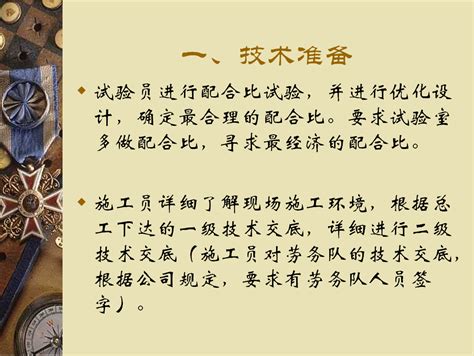 一、技术准备
试验员进行配合比试验，并进行优化设
计，确定最合理的配合比。要求试验室
多做配合比，寻求最经济的配合比。
施工员详细了解现场施工环境，根据总
工下达的一级技术交底，详细进行二级
技术交底（施工员对劳务队的技术交底，
根据公司规定，要求有劳务队人员签
字）。